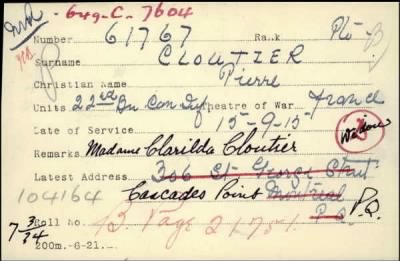 649-C-7604
Number 61767 Rank Pte
Surname CLOUTIER
Christian Name Pierre
Units 22nd Bn Can Inf Theatre of War France
Date of Service 15-9-15
Remarks Madame Clarilda Cloutier Widow
Latest Address 306 St. George Street
104164 Cascades Point Montreal P.Q.
P.Q.
Roll No. B Page 2175
200m.-6-21.